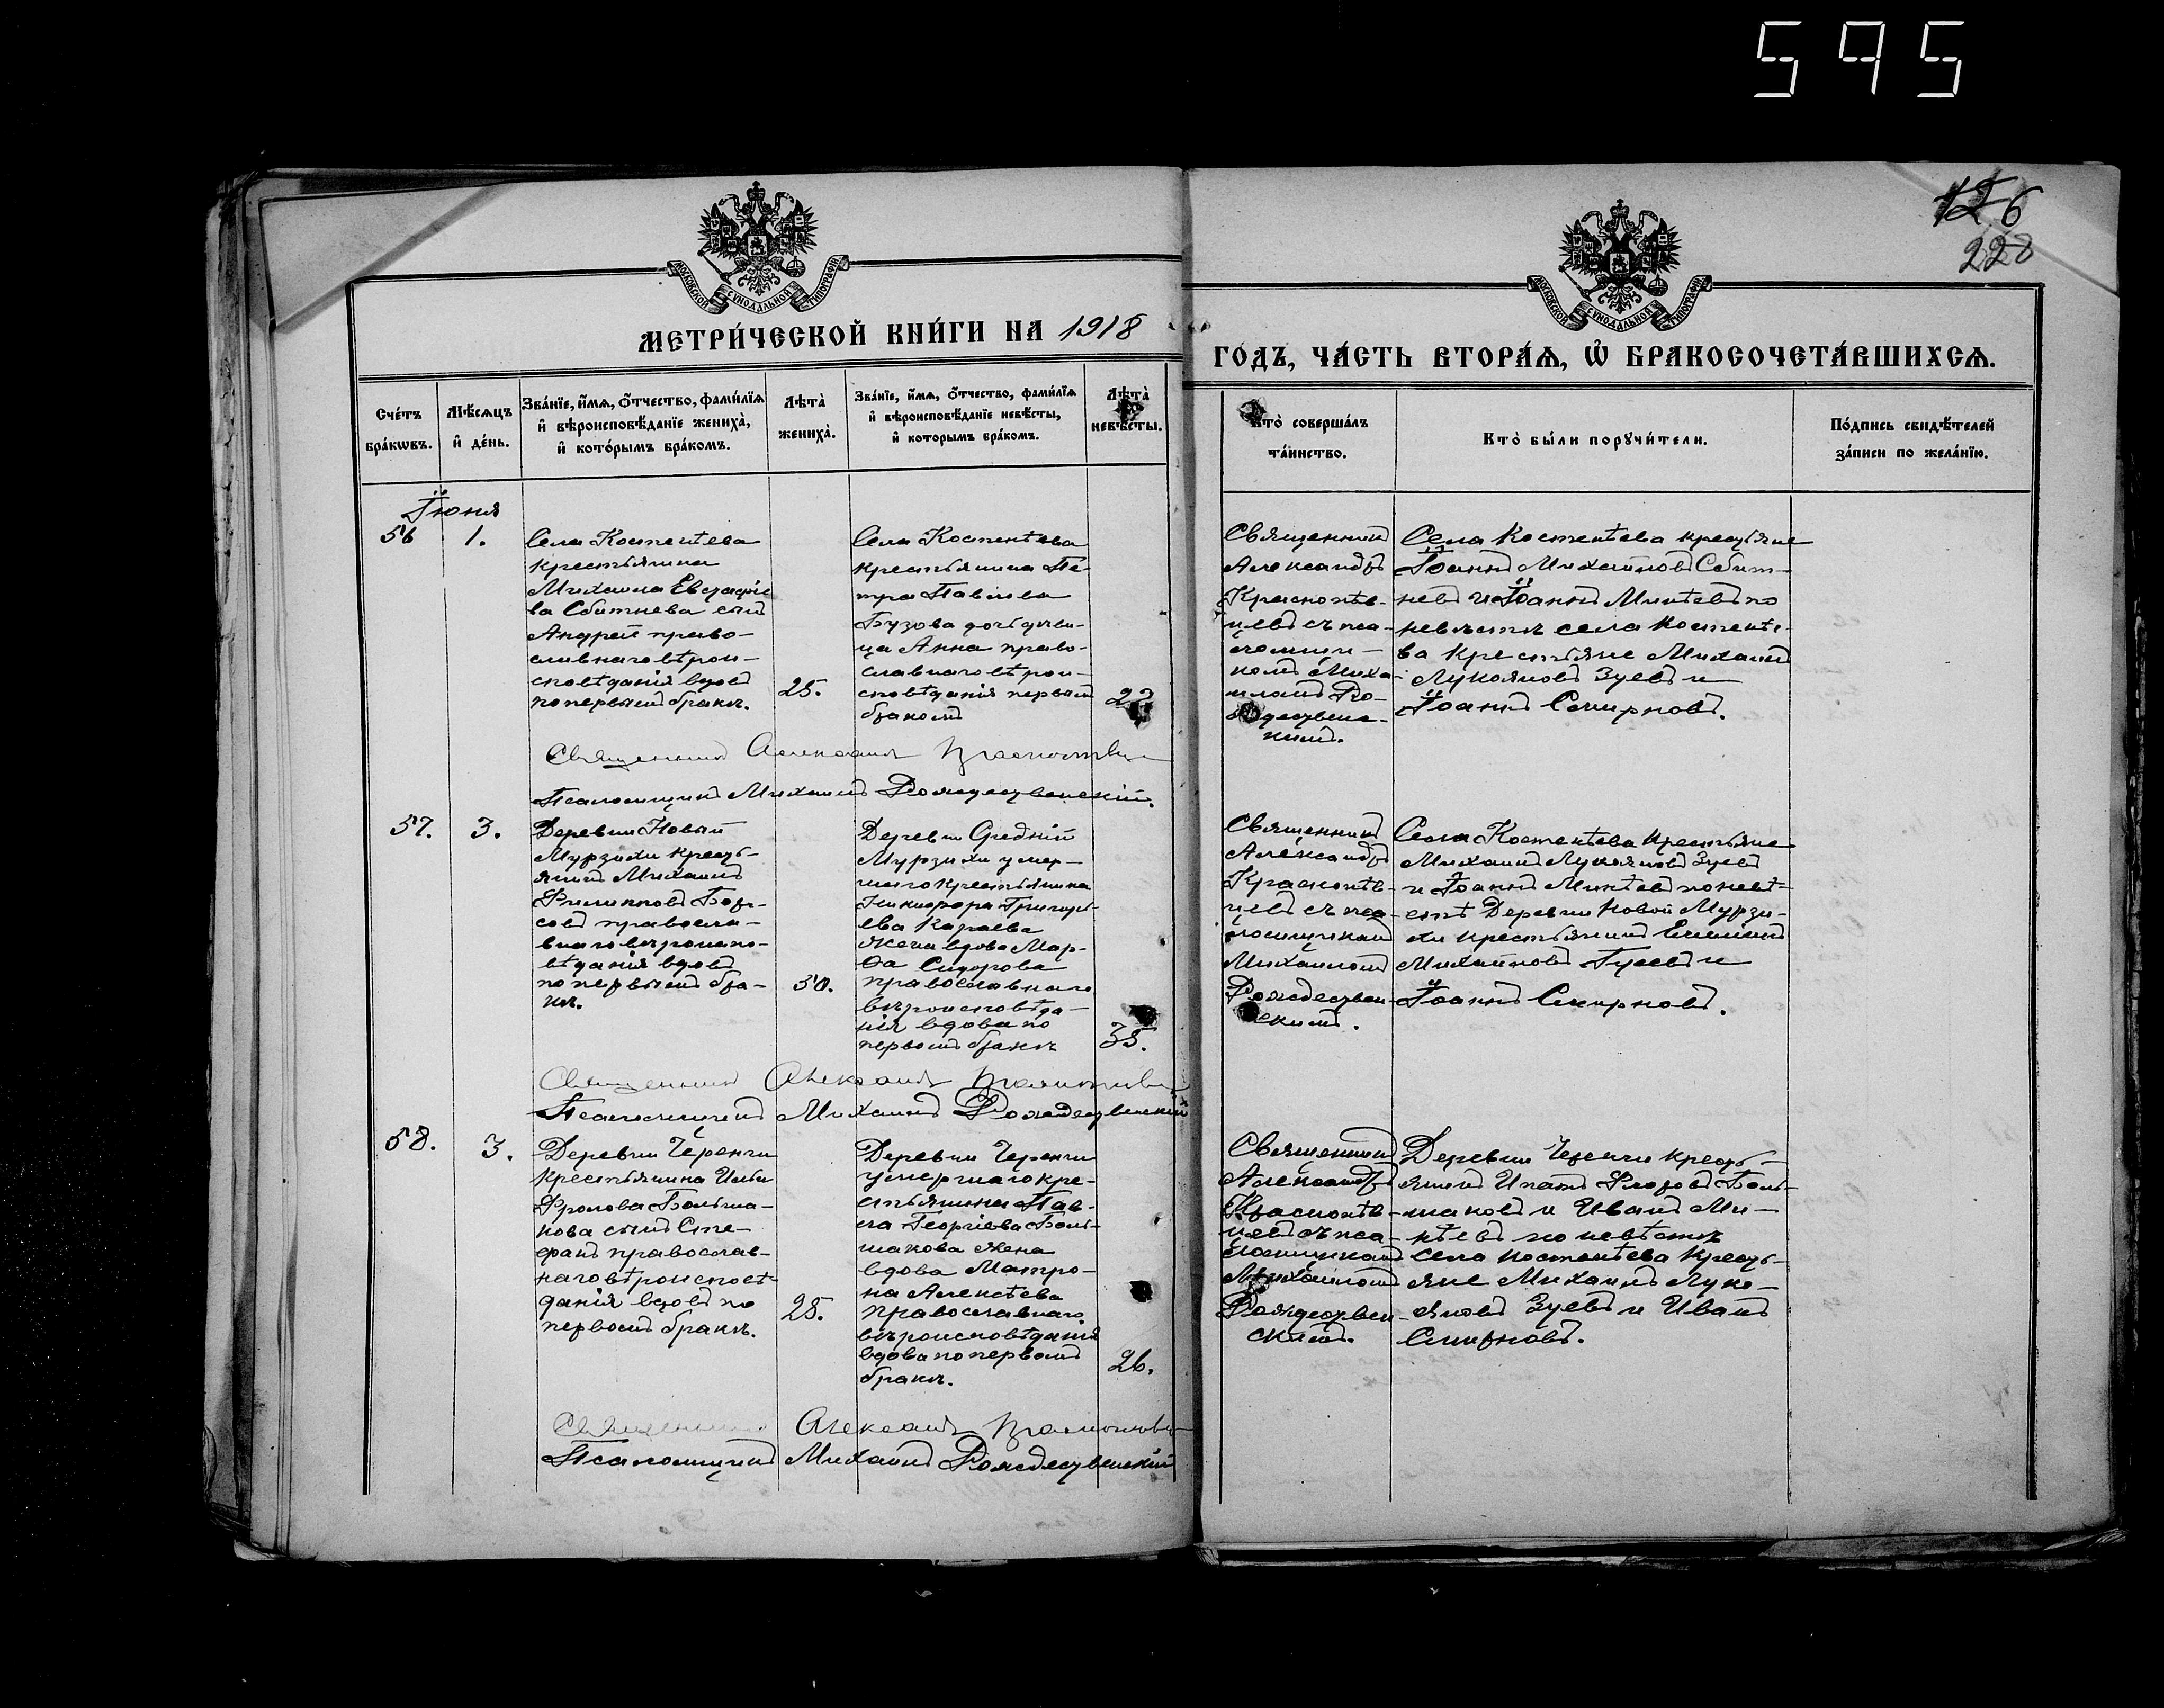 595
126
228
МОСКОВСКОЙ СѴНОДАЛЬНОЙ ТИПОГРАФІИ
МОСКОВСКОЙ СѴНОДАЛЬНОЙ ТИПОГРАФІИ
МЕТРИ́ЧЕСКОЙ КНИ́ГИ НА 1918
ГОДЪ, ЧА́СТЬ ВТОРА́Ѧ, Ѡ҆ БРАКОСОЧЕТА́ВШИХСѦ.
Сче́тъ бра́кѡвъ.
Мѣ́сѧцъ и҆ де́нь.
Зва́нїе, и҆́мѧ, ѻ҆́тчество, фами́лїѧ и҆ вѣроисповѣ́данїе жениха̀, и҆ кото́рымъ бра́комъ.
Лѣта̀ жениха̀.
Зва́нїе, и҆́мѧ, ѻ҆́тчество, фами́лїѧ и҆ вѣроисповѣ́данїе невѣ́сты, и҆ которымъ бра́комъ.
Лѣта̀ невѣ́сты.
Кто̀ соверша́лъ та́инство.
Кто̀ бы́ли порꙋчи́тели.
По́дпись свидѣ́телей за́писи по жела́нїю.
Іюня
56
1.
Села Костенѣева
крестьянина
Михаила Евстафіе
ва Сбитнева сынъ
Андрей право-
славнаго вѣрои-
сповѣданія вдовъ
по первымъ бракѣ.
25.
Села Костенѣева
крестьянина Пе-
тра Павлова
Бузова дочь дѣви-
ца Анна право-
славнаго вѣрои-
сповѣданія первымъ
бракомъ
Священникъ
Александръ
Краснопѣв-
цевъ съ пса-
ломщи-
комъ Миха-
иломъ Ро-
ждествен-
скимъ.
Села Костенѣева крестьяне
Іоаннъ Михайловъ Сбит-
невъ и Іоаннъ Михѣевъ по
невѣстѣ села Костенѣе-
ва крестьяне Михаилъ
Лукояновъ Зуевъ и
Іоаннъ Смирновъ.
Священникъ Александръ Краснопѣвцевъ
Псаломщикъ Михаилъ Рождественскій.
57.
3.
Деревни Новый
Мурзихи кресть-
янинъ Михаилъ
Филипповъ Бори-
совъ правосла-
внаго вѣроиспо-
вѣданія вдовъ
по первымъ бра-
кѣ.
30.
Деревни Средній
Мурзихи умер-
шаго крестьянина
Никифора Григорь-
ева Караева
жена вдова Мар-
ѳа Сидорова
православнаго
вѣроисповѣда-
нія вдова по
первомъ бракѣ
35.
Священникъ
Александръ
Краснопѣв-
цевъ съ пса-
ломщикомъ
Михаиломъ
Рождествен-
скимъ.
Села Костенѣева крестьяне
Михаилъ Лукояновъ Зуевъ
и Іоаннъ Михѣевъ по невѣ-
стѣ Деревни Новой Мурзи-
хи крестьянинъ
Михайловъ Гусевъ и
Іоаннъ Смирновъ.
Священникъ Александръ Краснопѣвцевъ
Псаломщикъ Михаилъ Рождественскій
58.
3.
Деревни Черенги
крестьянина Ильи
Фролова Больша-
кова сынъ Сте-
фанъ православ-
наго вѣроисповѣ-
данія вдовъ по
первомъ бракѣ.
25.
Деревни Черенги
умершаго кре-
стьянина Пав-
ла Георгіева Боль-
шакова жена
вдова Матро-
на Алексѣева
православнаго
вѣроисповѣданія
вдова по первомъ
бракѣ.
26.
Священникъ
Александръ
Краснопѣв-
цевъ съ пса-
ломщикомъ
Михаиломъ
Рождествен-
скимъ.
Деревни Черенги кресть-
янинъ Ипатъ Флоровъ Боль-
шаковъ и Иванъ Ми-
хѣевъ по невѣстѣ
села Костенѣева кресть-
яне Михаилъ Луко-
яновъ Зуевъ и Иванъ
Смирновъ.
Священникъ Александръ Краснопѣвцевъ
Псаломщикъ Михаилъ Рождественскій